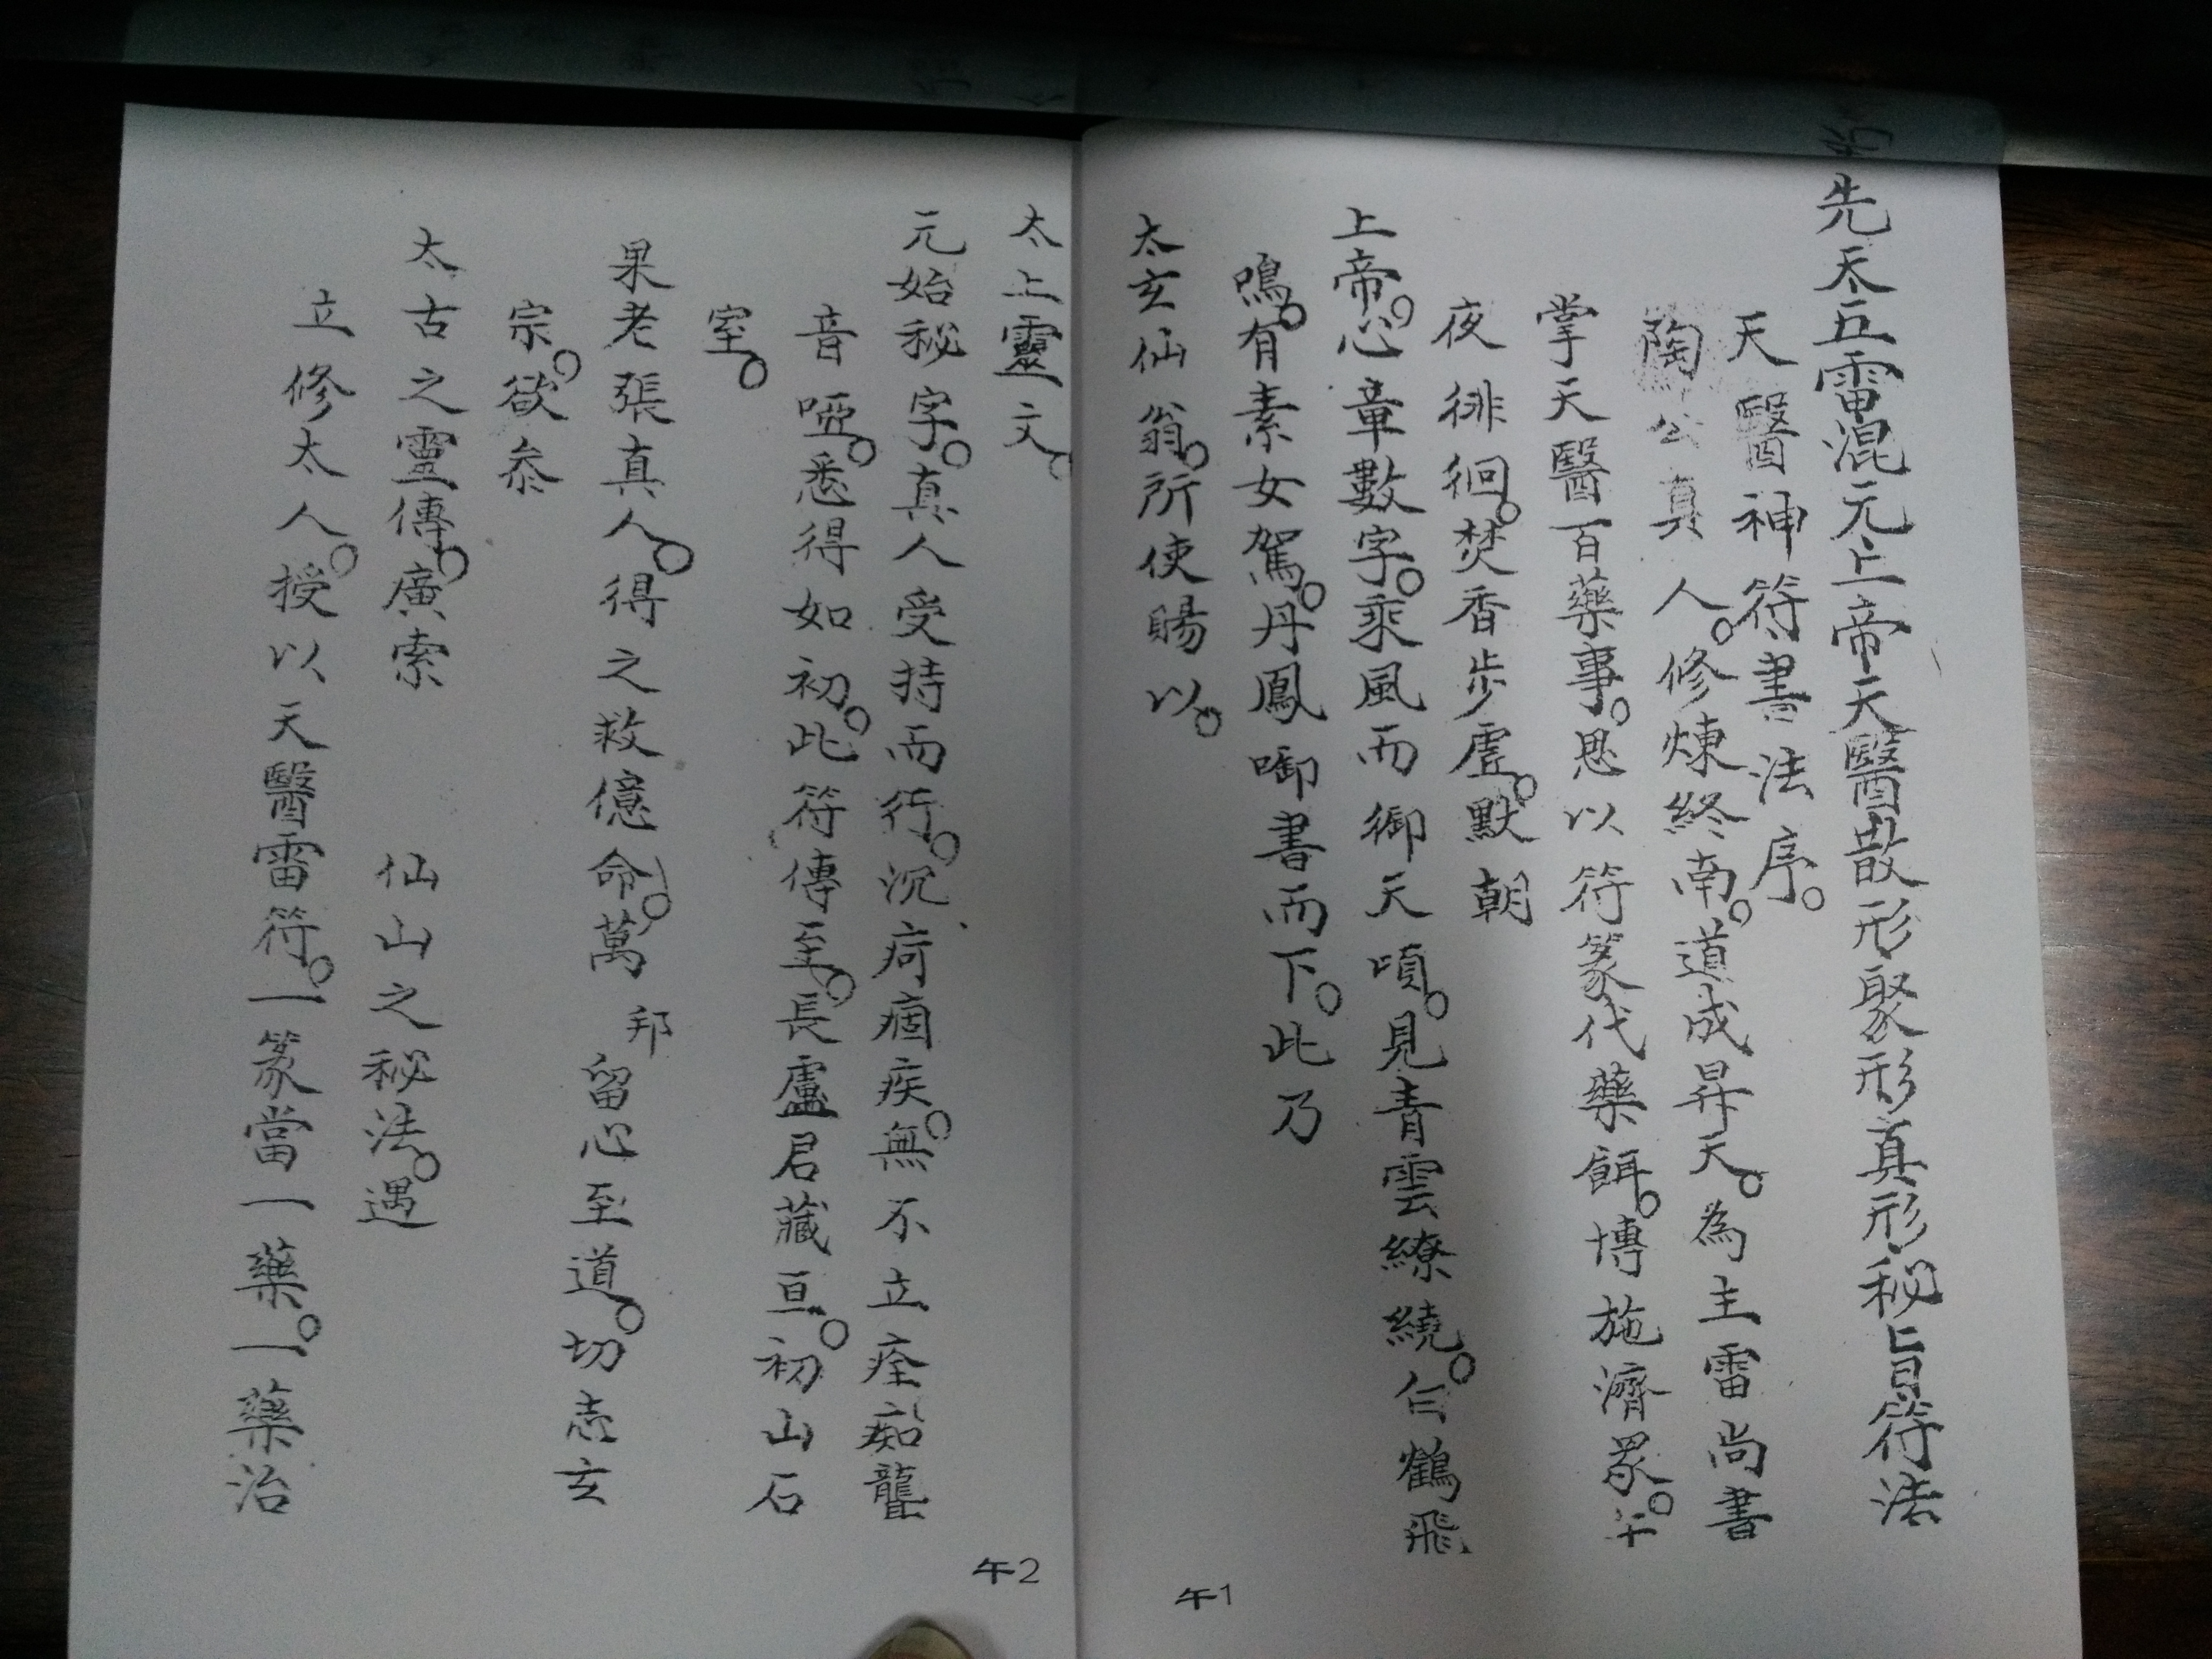 先天五雷混元上帝天醫散形聚形真形秘旨符法
天醫神符書法序。
陶公真人。修煉終南。道成昇天。為主雷尚書
掌天醫百藥事。思以符篆代藥餌。博施濟眾。午
夜徘徊。焚香步虛。默朝
上帝。心章數字。乘風而御天頃。見青雲繚繞。白鶴飛
鳴。有素女駕。丹鳳啣書而下。此乃
太玄仙翁。所使賜以。
午1
太上靈文。
元始秘字。真人受持而行。沉疴痼疾。無不立痊痴聾
音啞。悉得如初。此符傳至。長盧君藏亘。初山石
室。
果老張真人。得之救億命。萬邦留心至道。切志玄
宗。欲叅
太古之靈傳。廣索 仙山之秘法。遇
立修太人。授以天醫雷符。一篆當一藥。一藥治
午2